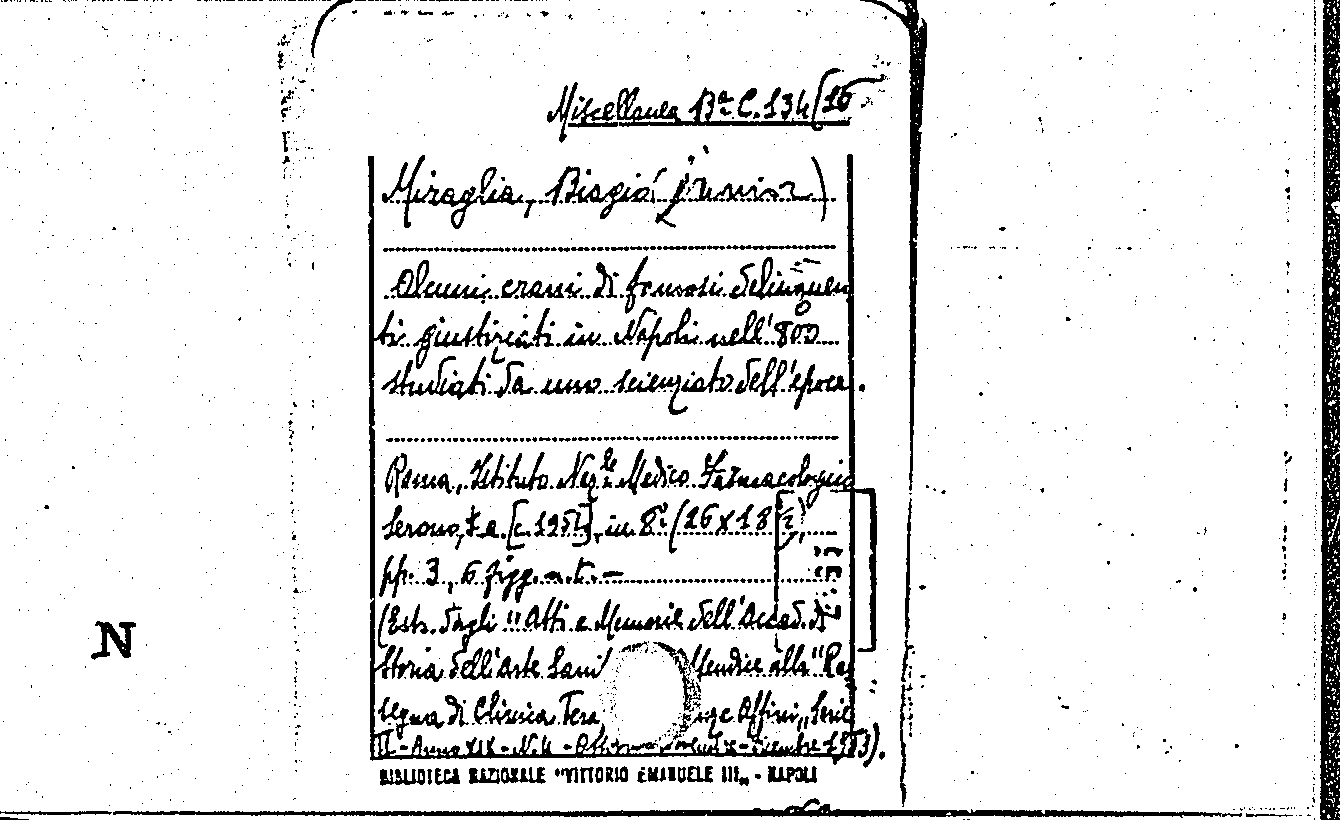 Miscellanea Bª C. 134/16
Miraglia, Biagio (junior)
Alcuni crani di famosi delinquen
ti giustiziati in Napoli nell'800
studiati da uno scienziato dell'epoca.
Roma, Istituto Naz.le Medico Farmacologico
Serono, s.a. [c. 1954], in 8° (26 x 18 ½)
pp. 3, 6 figg. n.t. —
(Estr. dagli "Atti e Memorie dell'Accad. di
Storia dell'Arte Sani alla "Ras
segna di Clinica Tera Affini„ Serie
II - Anno XIX - N. 4 -
BIBLIOTECA NAZIONALE "VITTORIO EMANUELE III„ - NAPOLI
N